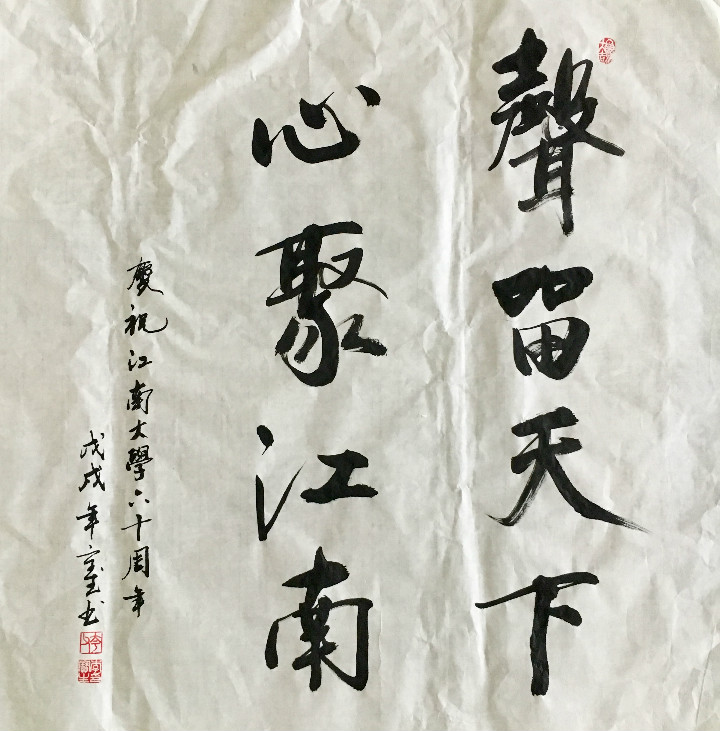 聲留天下
心聚江南
慶祝江南大學六十周年
戊戌年
书